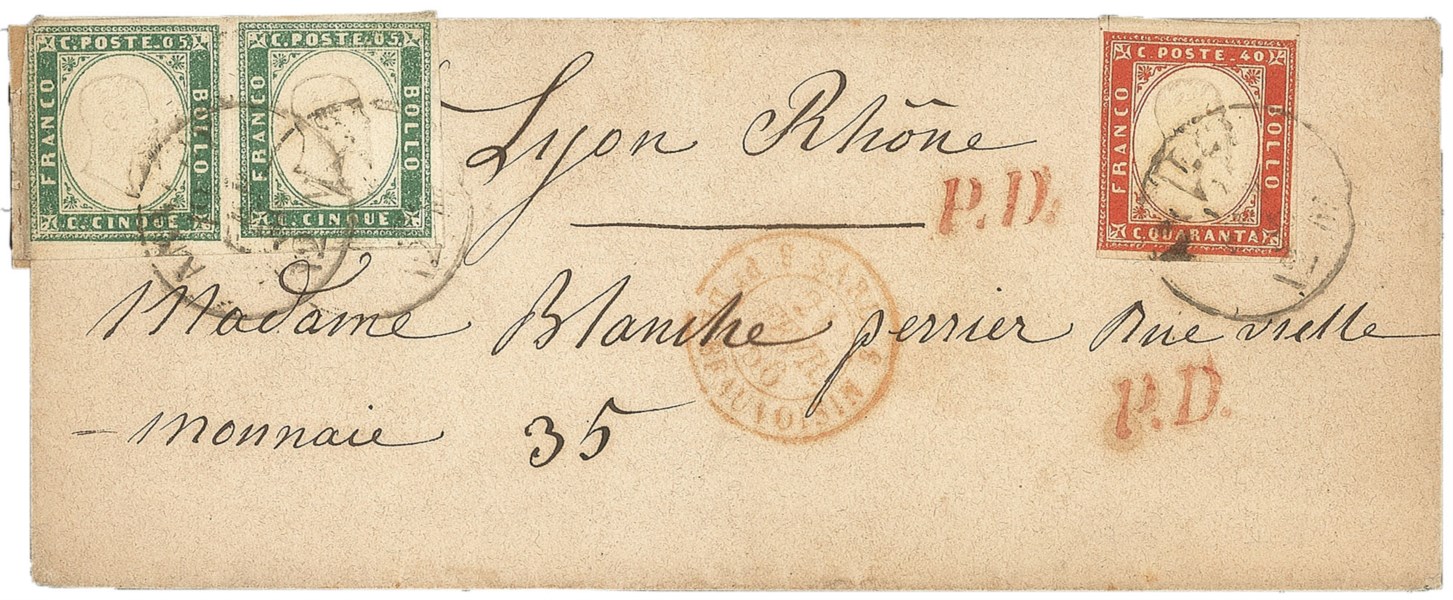 C. POSTE. 05
FRANCO
BOLLO
C. CINQUE
C. POSTE. 05
FRANCO
BOLLO
C. CINQUE
C. POSTE. 40
FRANCO
BOLLO
C. QUARANTA
Lyon Rhône
P.D.
Madame Blanche perrier Rue vielle
P.D.
- monnaie 35
SARD. BEAUVOISIN